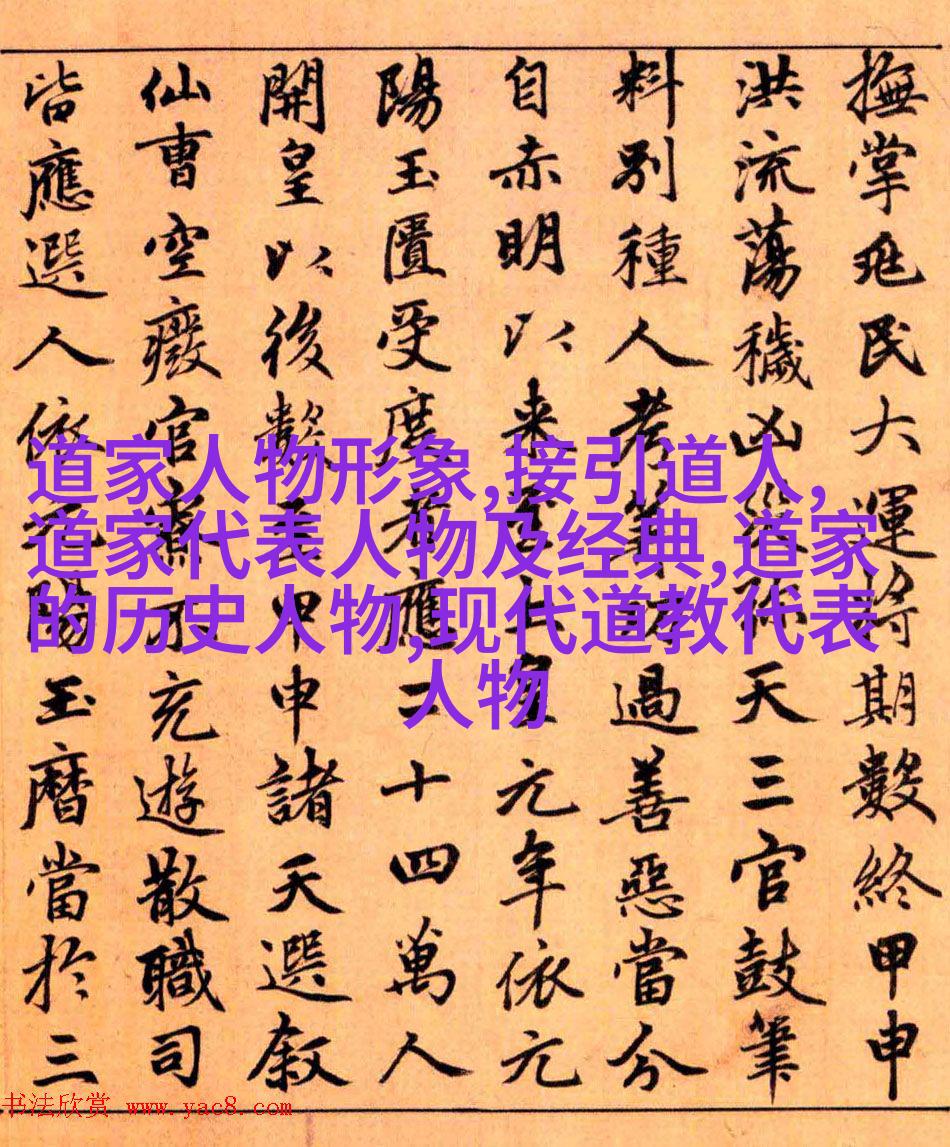 撫掌兆民大運將期數終甲申
洪流蕩穢凶弥天三官鼓筆
料別種人考筭功過善惡當分
自赤明以来至上皇元年依元
陽玉匱受度者應二十四萬人
開皇以後數至甲申諸天選叙
仙曹空廢官僚不充遊散職司
皆應選人依元陽玉曆當於三
道家人物形象,接引道人,
道家代表人物及经典,道家
的历史人物,现代道教代表
人物
书法欣赏 www.yac8.com